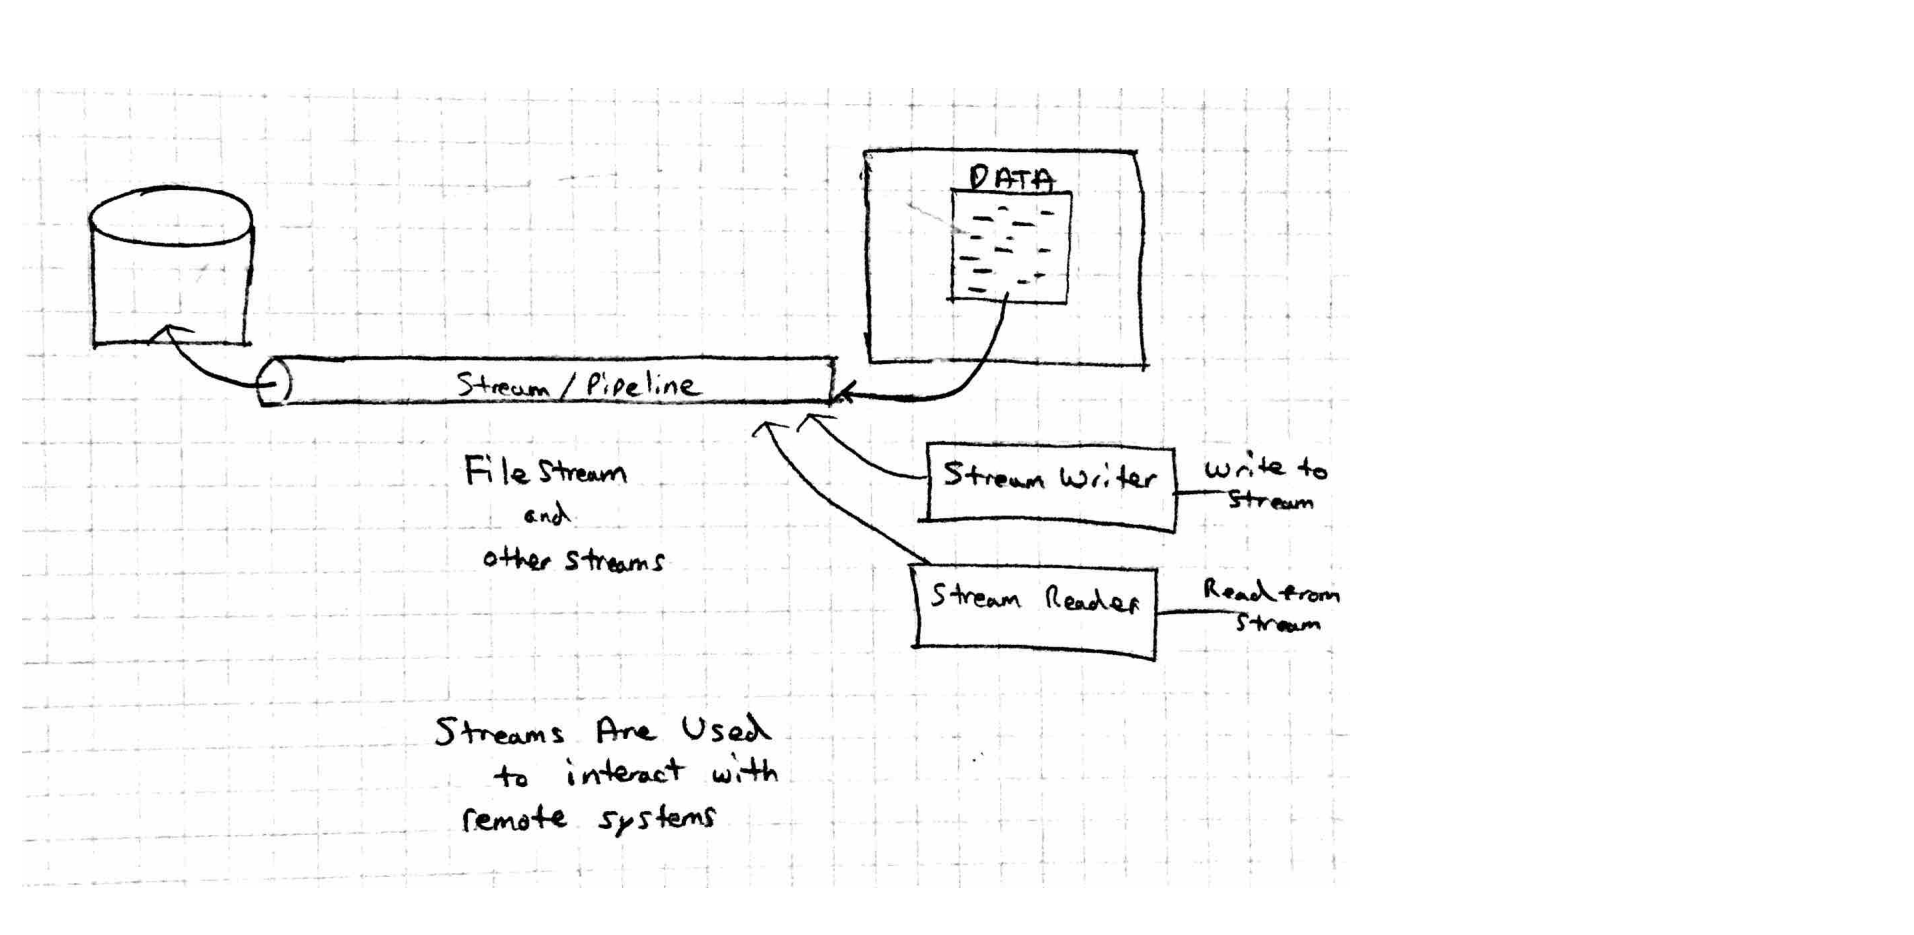 DATA
Stream / Pipeline
File Stream
and
other streams
Stream Writer
write to
stream
Stream Reader
Read from
stream
Streams Are Used
to interact with
remote systems